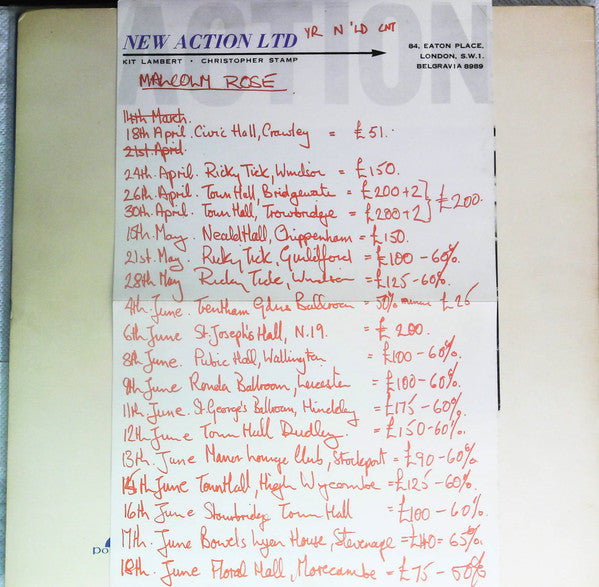 ACTION
NEW ACTION LTD
YR N 'LD CNT
KIT LAMBERT • CHRISTOPHER STAMP
84, EATON PLACE,
LONDON, S.W.1.
BELGRAVIA 8989
MALCOLM ROSE
14th March.
18th April. Civic Hall, Crawley = £51.
21st April.
24th. April. Ricky Tick, Windsor = £150.
26th. April. Town Hall, Bridgewater = £200÷2 } = £200.
30th. April. Town Hall, Trowbridge = £200÷2
15th. May. Neald Hall, Chippenham = £150.
21st. May. Ricky Tick, Guildford = £100 - 60%.
28th May Ricky Tick, Windsor = £125 - 60%.
4th. June. Trentham Gdns Ballroom = 50% minus £25
6th June St. Joseph's Hall, N.19. = £200.
8th June. Public Hall, Wallington = £100 - 60%.
9th June Ronda Ballroom, Leicester = £100 - 60%.
11th June. St. George's Ballroom, Hinckley = £175 - 60%.
12th June Town Hall Dudley. = £150 - 60%.
13th. June Manor Lounge Club, Stockport = £90 - 60%.
15th June Town Hall, High Wycombe = £125 - 60%.
16th June Stourbridge Town Hall = £100 - 60%.
17th. June Bowes Lyon House, Stevenage = £140 = 65%.
18th. June Floral Hall, Morecambe = £75 - 50%
po